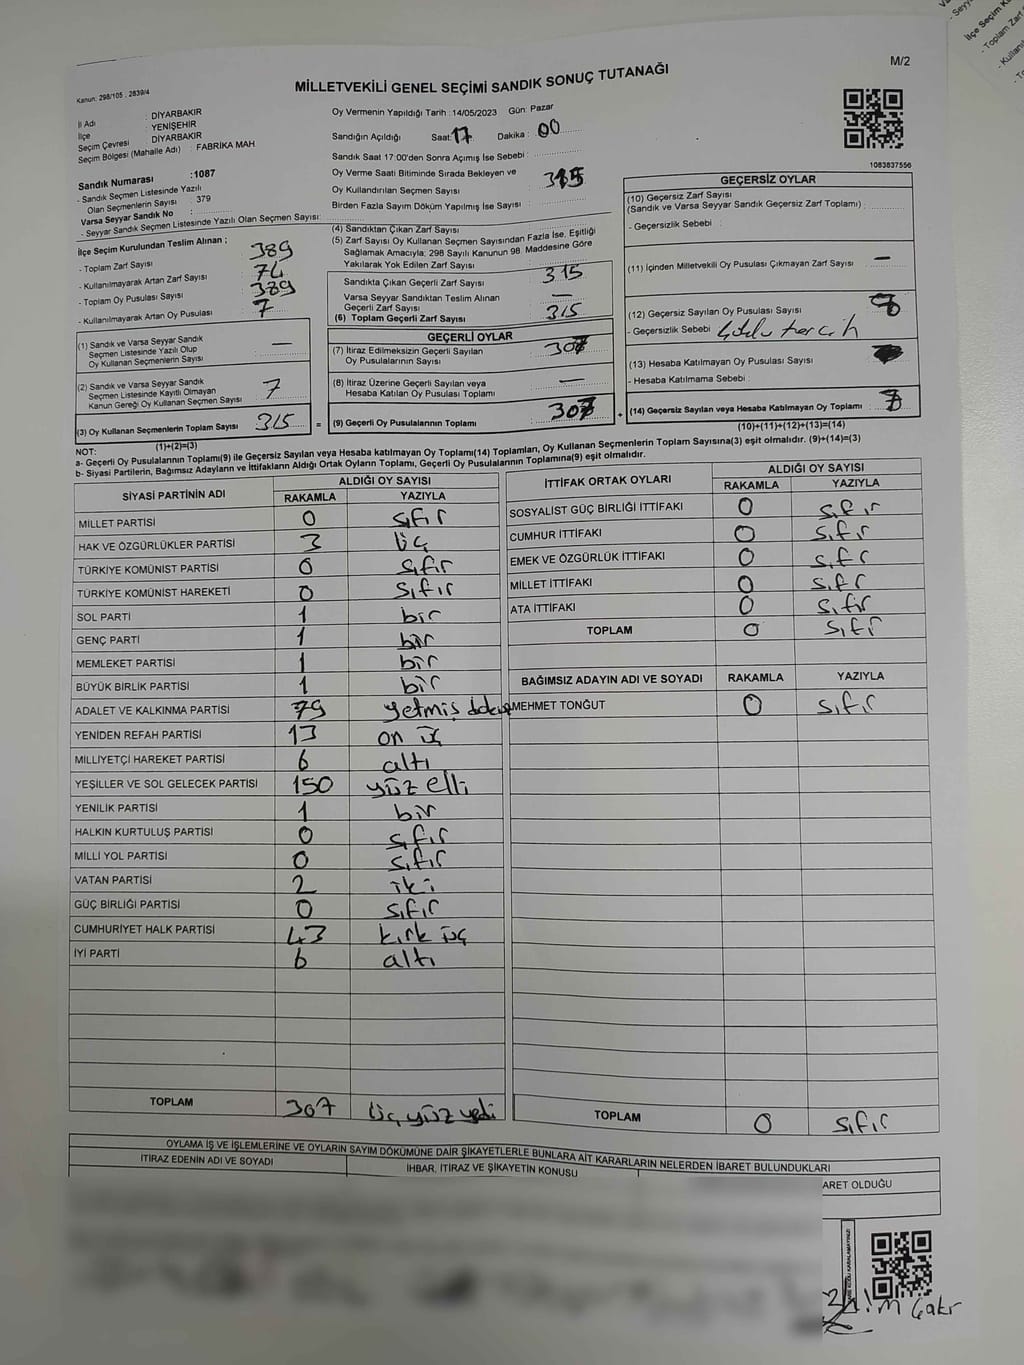 M/2
Kanun: 298/105 , 2839/4
MİLLETVEKİLİ GENEL SEÇİMİ SANDIK SONUÇ TUTANAĞI
İl Adı : DİYARBAKIR
İlçe : YENİŞEHİR
Seçim Çevresi : DİYARBAKIR
Seçim Bölgesi (Mahalle Adı) : FABRİKA MAH
Oy Vermenin Yapıldığı Tarih : 14/05/2023 Gün: Pazar
Sandığın Açıldığı Saat: 17 Dakika : 00
Sandık Saat 17:00'den Sonra Açımış İse Sebebi :
Oy Verme Saati Bitiminde Sırada Bekleyen ve
Oy Kullandırılan Seçmen Sayısı
Birden Fazla Sayım Döküm Yapılmış İse Sayısı :
1083837556
Sandık Numarası :1087
- Sandık Seçmen Listesinde Yazılı
Olan Seçmenlerin Sayısı : 379
Varsa Seyyar Sandık No :
- Seyyar Sandık Seçmen Listesinde Yazılı Olan Seçmen Sayısı:
İlçe Seçim Kurulundan Teslim Alınan ;
- Toplam Zarf Sayısı 389
- Kullanılmayarak Artan Zarf Sayısı 74
- Toplam Oy Pusulası Sayısı 389
- Kullanılmayarak Artan Oy Pusulası 7
(1) Sandık ve Varsa Seyyar Sandık
Seçmen Listesinde Yazılı Olup
Oy Kullanan Seçmenlerin Sayısı —
(2) Sandık ve Varsa Seyyar Sandık
Seçmen Listesinde Kayıtlı Olmayan
Kanun Gereği Oy Kullanan Seçmen Sayısı 7
(3) Oy Kullanan Seçmenlerin Toplam Sayısı 315
(1)+(2)=(3)
(4) Sandıktan Çıkan Zarf Sayısı :
(5) Zarf Sayısı Oy Kullanan Seçmen Sayısından Fazla İse, Eşitliği
Sağlamak Amacıyla; 298 Sayılı Kanunun 98. Maddesine Göre
Yakılarak Yok Edilen Zarf Sayısı :
Sandıkta Çıkan Geçerli Zarf Sayısı 315
Varsa Seyyar Sandıktan Teslim Alınan
Geçerli Zarf Sayısı —
(6) Toplam Geçerli Zarf Sayısı 315
GEÇERLİ OYLAR
(7) İtiraz Edilmeksizin Geçerli Sayılan
Oy Pusulalarının Sayısı 307
(8) İtiraz Üzerine Geçerli Sayılan veya
Hesaba Katılan Oy Pusulası Toplamı —
= (9) Geçerli Oy Pusulalarının Toplamı 307
GEÇERSİZ OYLAR
(10) Geçersiz Zarf Sayısı
(Sandık ve Varsa Seyyar Sandık Geçersiz Zarf Toplamı) :
- Geçersizlik Sebebi :
(11) İçinden Milletvekili Oy Pusulası Çıkmayan Zarf Sayısı —
(12) Geçersiz Sayılan Oy Pusulası Sayısı 8
- Geçersizlik Sebebi
(13) Hesaba Katılmayan Oy Pusulası Sayısı
- Hesaba Katılmama Sebebi :
+ (14) Geçersiz Sayılan veya Hesaba Katılmayan Oy Toplamı 8
(10)+(11)+(12)+(13)=(14)
NOT:
a- Geçerli Oy Pusulalarının Toplamı(9) ile Geçersiz Sayılan veya Hesaba katılmayan Oy Toplamı(14) Toplamları, Oy Kullanan Seçmenlerin Toplam Sayısına(3) eşit olmalıdır. (9)+(14)=(3)
b- Siyasi Partilerin, Bağımsız Adayların ve İttifakların Aldığı Ortak Oyların Toplamı, Geçerli Oy Pusulalarının Toplamına(9) eşit olmalıdır.
SİYASİ PARTİNİN ADI ALDIĞI OY SAYISI
RAKAMLA YAZIYLA
MİLLET PARTİSİ 0 sıfır
HAK VE ÖZGÜRLÜKLER PARTİSİ 3 üç
TÜRKİYE KOMÜNİST PARTİSİ 0 sıfır
TÜRKİYE KOMÜNİST HAREKETİ 0 sıfır
SOL PARTİ 1 bir
GENÇ PARTİ 1 bir
MEMLEKET PARTİSİ 1 bir
BÜYÜK BİRLİK PARTİSİ 1 bir
ADALET VE KALKINMA PARTİSİ 79 yetmiş dokuz
YENİDEN REFAH PARTİSİ 13 on üç
MİLLİYETÇİ HAREKET PARTİSİ 6 altı
YEŞİLLER VE SOL GELECEK PARTİSİ 150 yüz elli
YENİLİK PARTİSİ 1 bir
HALKIN KURTULUŞ PARTİSİ 0 sıfır
MİLLİ YOL PARTİSİ 0 sıfır
VATAN PARTİSİ 2 iki
GÜÇ BİRLİĞİ PARTİSİ 0 sıfır
CUMHURİYET HALK PARTİSİ 43 kırk üç
İYİ PARTİ 6 altı
TOPLAM 307 üç yüz yedi
İTTİFAK ORTAK OYLARI ALDIĞI OY SAYISI
RAKAMLA YAZIYLA
SOSYALİST GÜÇ BİRLİĞİ İTTİFAKI 0 sıfır
CUMHUR İTTİFAKI 0 sıfır
EMEK VE ÖZGÜRLÜK İTTİFAKI 0 sıfır
MİLLET İTTİFAKI 0 sıfır
ATA İTTİFAKI 0 sıfır
TOPLAM 0 sıfır
BAĞIMSIZ ADAYIN ADI VE SOYADI RAKAMLA YAZIYLA
MEHMET TONĞUT 0 sıfır
TOPLAM 0 sıfır
OYLAMA İŞ VE İŞLEMLERİNE VE OYLARIN SAYIM DÖKÜMÜNE DAİR ŞİKAYETLERLE BUNLARA AİT KARARLARIN NELERDEN İBARET BULUNDUKLARI
İTİRAZ EDENİN ADI VE SOYADI İHBAR, İTİRAZ VE ŞİKAYETİN KONUSU ARET OLDUĞU